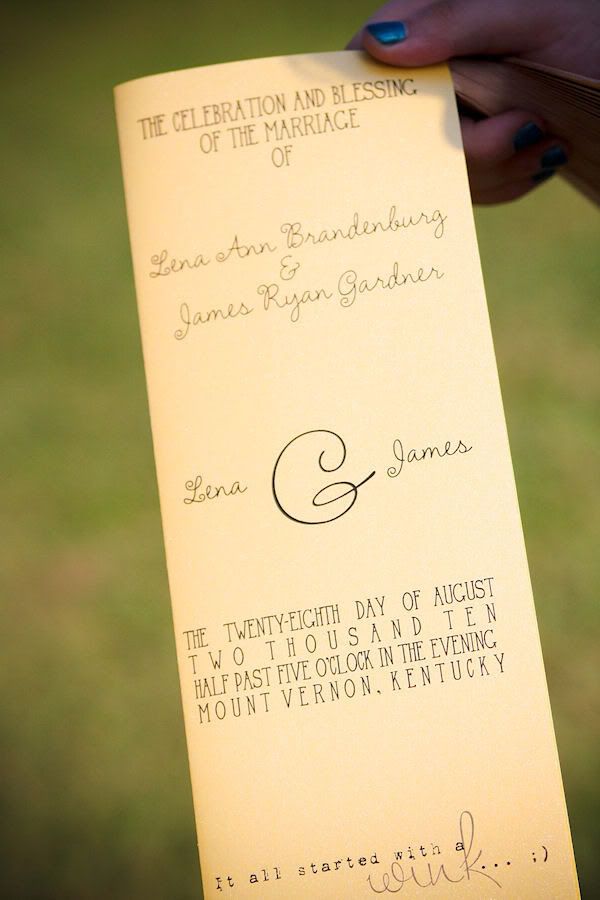 THE CELEBRATION AND BLESSING
OF THE MARRIAGE
OF
Lena Ann Brandenburg
&
James Ryan Gardner
Lena G James
THE TWENTY-EIGHTH DAY OF AUGUST
TWO THOUSAND TEN
HALF PAST FIVE O'CLOCK IN THE EVENING
MOUNT VERNON, KENTUCKY
It all started with a wink... ;)